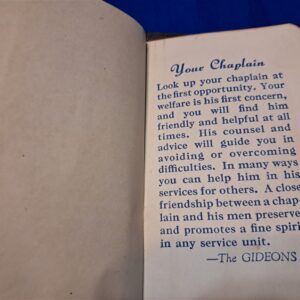 Your Chaplain
Look up your chaplain at
the first opportunity. Your
welfare is his first concern,
and you will find him
friendly and helpful at all
times. His counsel and
advice will guide you in
avoiding or overcoming
difficulties. In many ways
you can help him in his
services for others. A close
friendship between a chap-
lain and his men preserve
and promotes a fine spiri
in any service unit.
—The GIDEONS